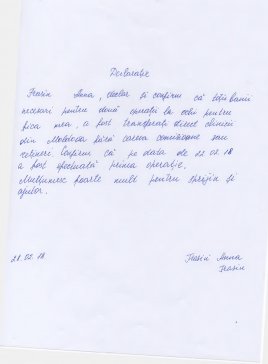 Declarație
Frasin Anna, declar și confirm că toți banii
necesari pentru două operații la ochi pentru
fiica mea, a fost transferați direct clinicii
din Moldova fără careva comisioane sau
rețineri. Confirm că pe data de 22 02 18
a fost efectuată prima operație.
Mulțumesc foarte mult pentru sprijin și
ajutor.
21.02 18
Frasin Anna
Frasin